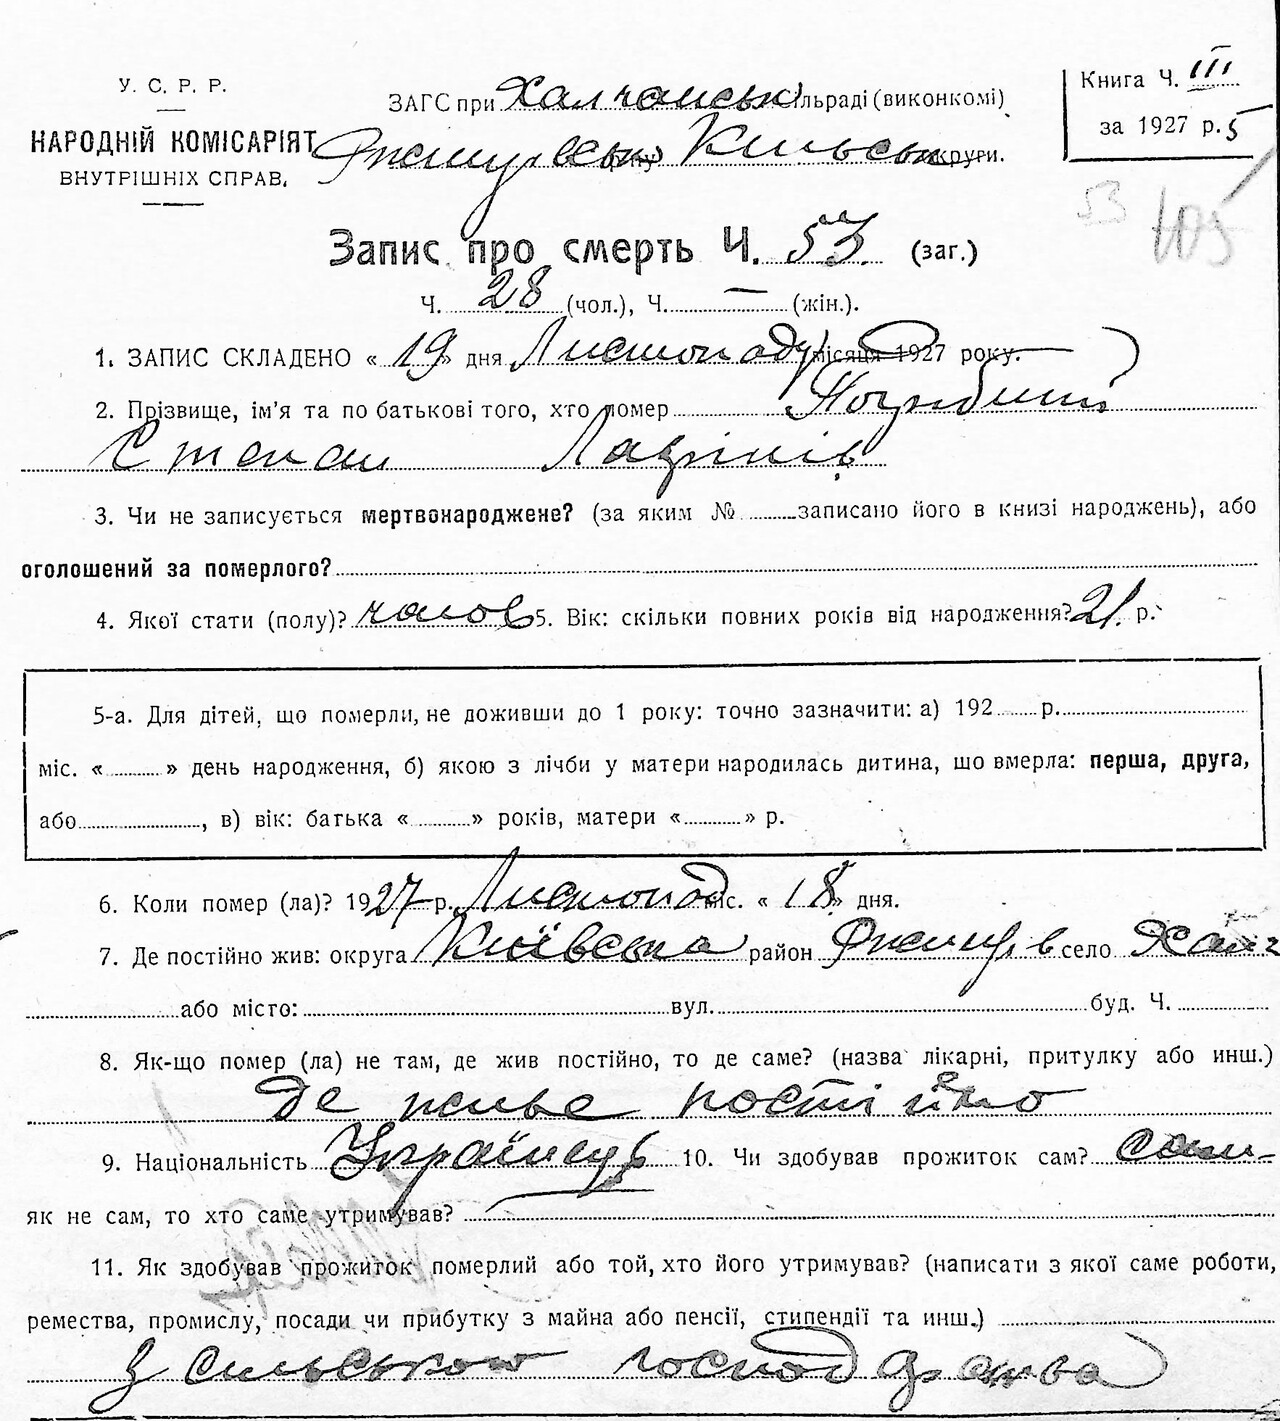 У. С. Р. Р.
НАРОДНІЙ КОМІСАРІЯТ
ВНУТРІШНІХ СПРАВ.
ЗАГС при Халчанськ сільраді (виконкомі)
округи.
Книга Ч. III
за 1927 р. 5
53 105
Запис про смерть Ч. 53 (заг.)
Ч. 28 (чол.), Ч. — (жін.).
1. ЗАПИС СКЛАДЕНО « 19 » дня Листопаду місяця 1927 року.
2. Прізвище, ім'я та по батькові того, хто помер
Степан
3. Чи не записується мертвонароджене? (за яким № записано його в книзі народжень), або
оголошений за померлого?
4. Якої стати (полу)? чолов 5. Вік: скільки повних років від народження? 21. р.
5-а. Для дітей, що померли, не доживши до 1 року: точно зазначити: а) 192 р.
міс. « » день народження, б) якою з лічби у матери народилась дитина, що вмерла: перша, друга,
або , в) вік: батька « » років, матери « » р.
6. Коли помер (ла)? 1927 р. Листопад міс. « 18 » дня.
7. Де постійно жив: округа Київська район Ржищів село
або місто: вул. буд. Ч.
8. Як-що помер (ла) не там, де жив постійно, то де саме? (назва лікарні, притулку або инш.)
де живе постійно
9. Національність Українець 10. Чи здобував прожиток сам? сам
як не сам, то хто саме утримував?
11. Як здобував прожиток померлий або той, хто його утримував? (написати з якої саме роботи,
ремества, промислу, посади чи прибутку з майна або пенсії, стипендії та инш.)
З сільського господарства